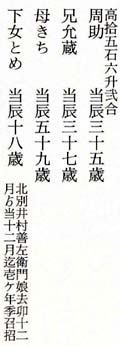 高拾五石六升弐合
周助　当辰三十五歳
兄允蔵　当辰三十七歳
母きち　当辰五十九歳
下女とめ　当辰十八歳
北別井村善左衛門娘去卯十二
月ゟ当十二月迄壱ケ年季召招